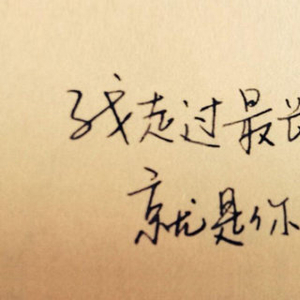 我走过最长
就是你